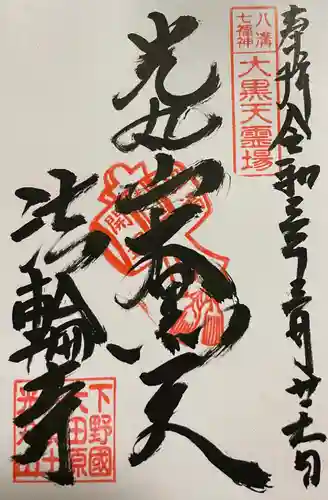 奉拝 令和三年三月廿六日
八溝
七福神
大黒天霊場
光丸山
大黒天
法輪寺
下野國
大田原